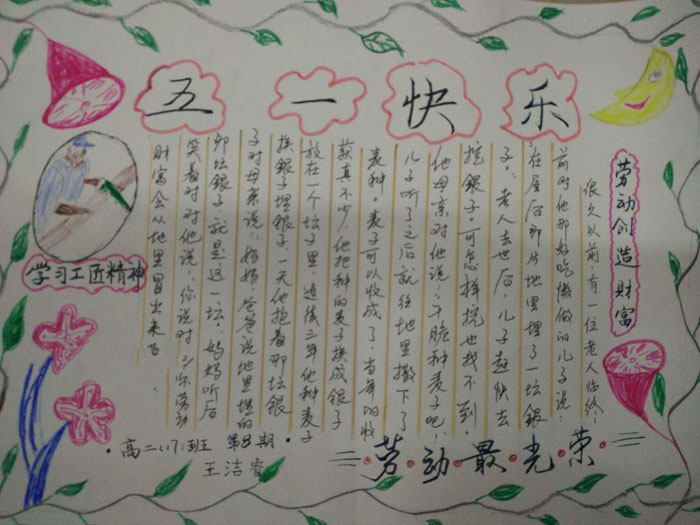 五一快乐
劳动创造财富
很久以前,有一位老人临终
前对他那好吃懒做的儿子说:
在屋后那片地里埋了一坛银
子:老人去世后,儿子赶快去
挖银子,可怎样挖也找不到。
他母亲对他说:干脆种麦子吧!
儿子听了之后就往地里撒下了
麦种,麦子可以收成了,当年的收
获真不少,他把种的麦子换成银子
放在一个坛子里,连续三年他种麦子
换银子埋银子,一天他抱着那坛银
子对母亲说:妈妈,爸爸说地里埋的
那坛银子就是这一坛,妈妈听后
笑着对对他说:你说对,只不劳动
财富会从地里冒出来
学习工匠精神
高二(17)班 第8期
王洁睿
劳动最光荣